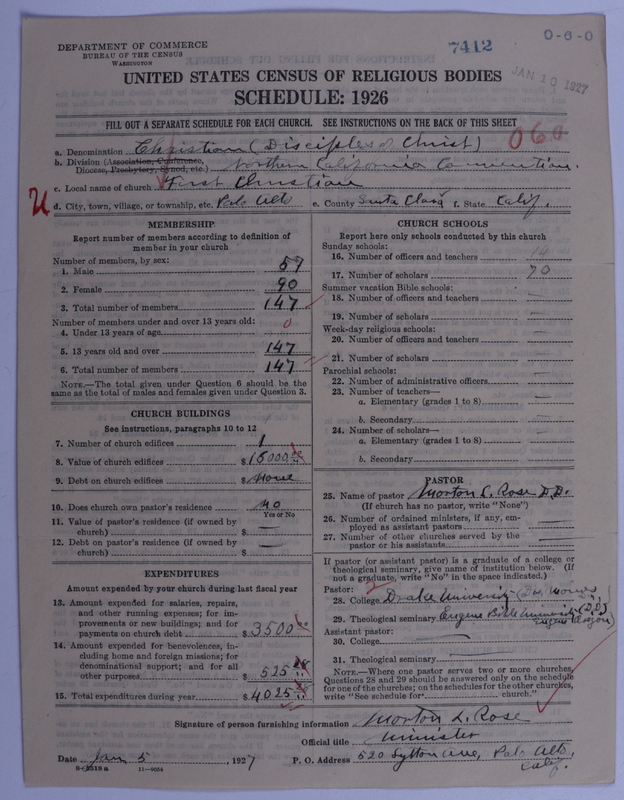 DEPARTMENT OF COMMERCE
BUREAU OF THE CENSUS
WASHINGTON
7412
0-6-0
JAN 10 1927
UNITED STATES CENSUS OF RELIGIOUS BODIES
SCHEDULE: 1926
FILL OUT A SEPARATE SCHEDULE FOR EACH CHURCH. SEE INSTRUCTIONS ON THE BACK OF THIS SHEET
a. Denomination Christian (Disciples of Christ) 060
b. Division (Association, Conference, Diocese, Presbytery, Synod, etc.) Northern California Convention.
c. Local name of church First Christian
d. City, town, village, or township, etc. Palo Alto e. County Santa Clara f. State Calif.
MEMBERSHIP
Report number of members according to definition of
member in your church
Number of members, by sex:
1. Male 57
2. Female 90
3. Total number of members 147
Number of members under and over 13 years old:
4. Under 13 years of age 0
5. 13 years old and over 147
6. Total number of members 147
NOTE.—The total given under Question 6 should be the
same as the total of males and females given under Question 3.
CHURCH BUILDINGS
See instructions, paragraphs 10 to 12
7. Number of church edifices 1
8. Value of church edifices $ 15000
9. Debt on church edifices $ None
10. Does church own pastor's residence No
Yes or No
11. Value of pastor's residence (if owned by
church) $ —
12. Debt on pastor's residence (if owned by
church) $ —
EXPENDITURES
Amount expended by your church during last fiscal year
13. Amount expended for salaries, repairs,
and other running expenses; for im-
provements or new buildings; and for
payments on church debt $ 3500
14. Amount expended for benevolences, in-
cluding home and foreign missions; for
denominational support; and for all
other purposes $ 525
15. Total expenditures during year $ 4025
CHURCH SCHOOLS
Report here only schools conducted by this church
Sunday schools:
16. Number of officers and teachers 14
17. Number of scholars 70
Summer vacation Bible schools:
18. Number of officers and teachers —
19. Number of scholars —
Week-day religious schools:
20. Number of officers and teachers —
21. Number of scholars —
Parochial schools:
22. Number of administrative officers —
23. Number of teachers—
a. Elementary (grades 1 to 8) —
b. Secondary —
24. Number of scholars—
a. Elementary (grades 1 to 8) —
b. Secondary —
PASTOR
25. Name of pastor Morton L. Rose D.D.
(If church has no pastor, write "None")
26. Number of ordained ministers, if any, em-
ployed as assistant pastors —
27. Number of other churches served by the
pastor or his assistants —
If pastor (or assistant pastor) is a graduate of a college or
theological seminary, give name of institution below. (If
not a graduate, write "No" in the space indicated.)
Pastor:
28. College Drake University (Des Moines
29. Theological seminary Eugene Bible University (D.D.)
Eugene Oregon
Assistant pastor:
30. College —
31. Theological seminary —
NOTE.—Where one pastor serves two or more churches,
Questions 28 and 29 should be answered only on the schedule
for one of the churches; on the schedules for the other churches,
write "See schedule for church."
Signature of person furnishing information Morton L. Rose
Official title Minister
Date Jan 5, 1927 P. O. Address 520 Lytton Ave, Palo Alto,
Calif.
8—1518 a 11—9054